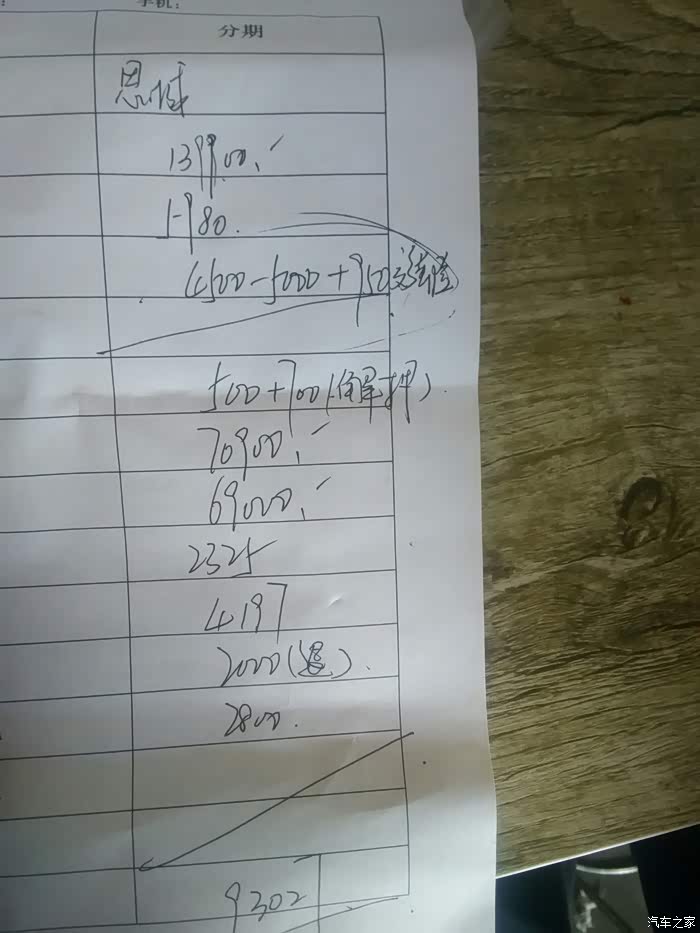 手机:
分期
思域
139900.
1980.
4500-5000+950交强险
500+700(解押).
70900.
69000.
2325
4197
2000(退).
2800.
9302
汽车之家